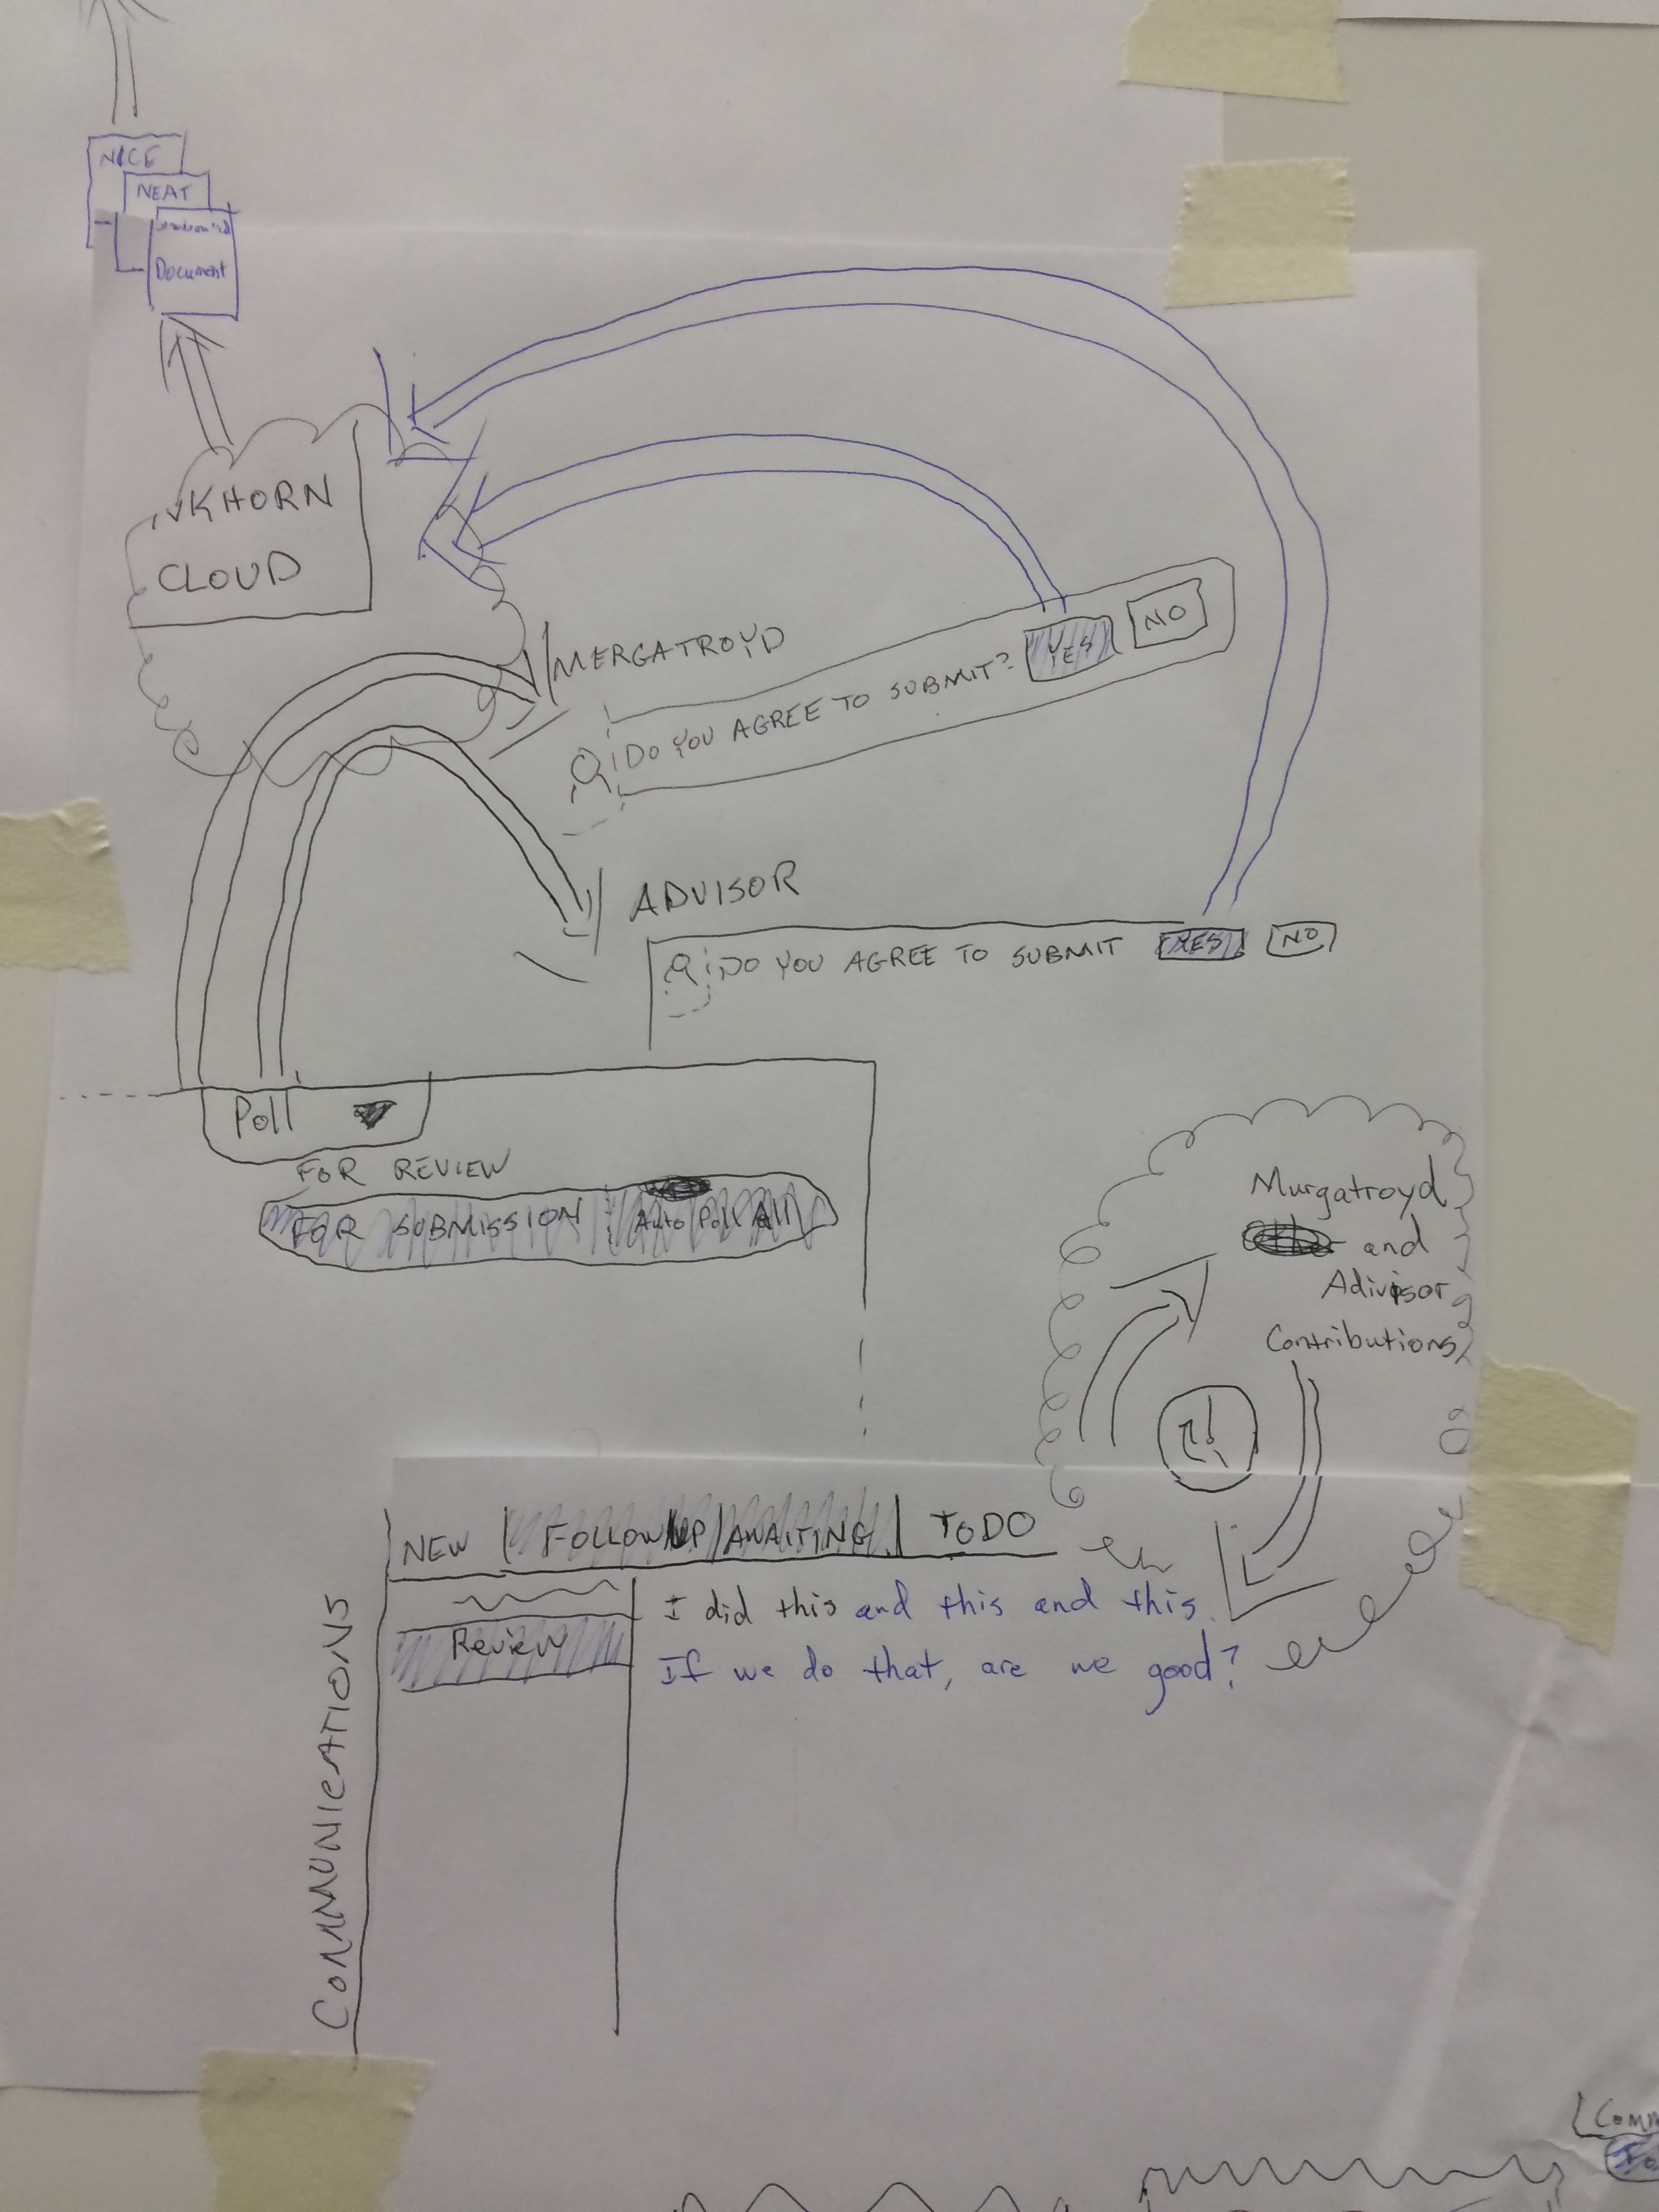 NICE
NEAT
Document
KHORN
CLOUD
MERGATROYD
DO YOU AGREE TO SUBMIT? YES NO
ADVISOR
DO YOU AGREE TO SUBMIT YES NO
Poll
FOR REVIEW
FOR SUBMISSION Auto Poll All
Murgatroyd
and
Adivisor
Contributions
COMMUNICATIONS
NEW FOLLOWUP AWAITING TODO
Review
I did this and this and this.
If we do that, are we good?